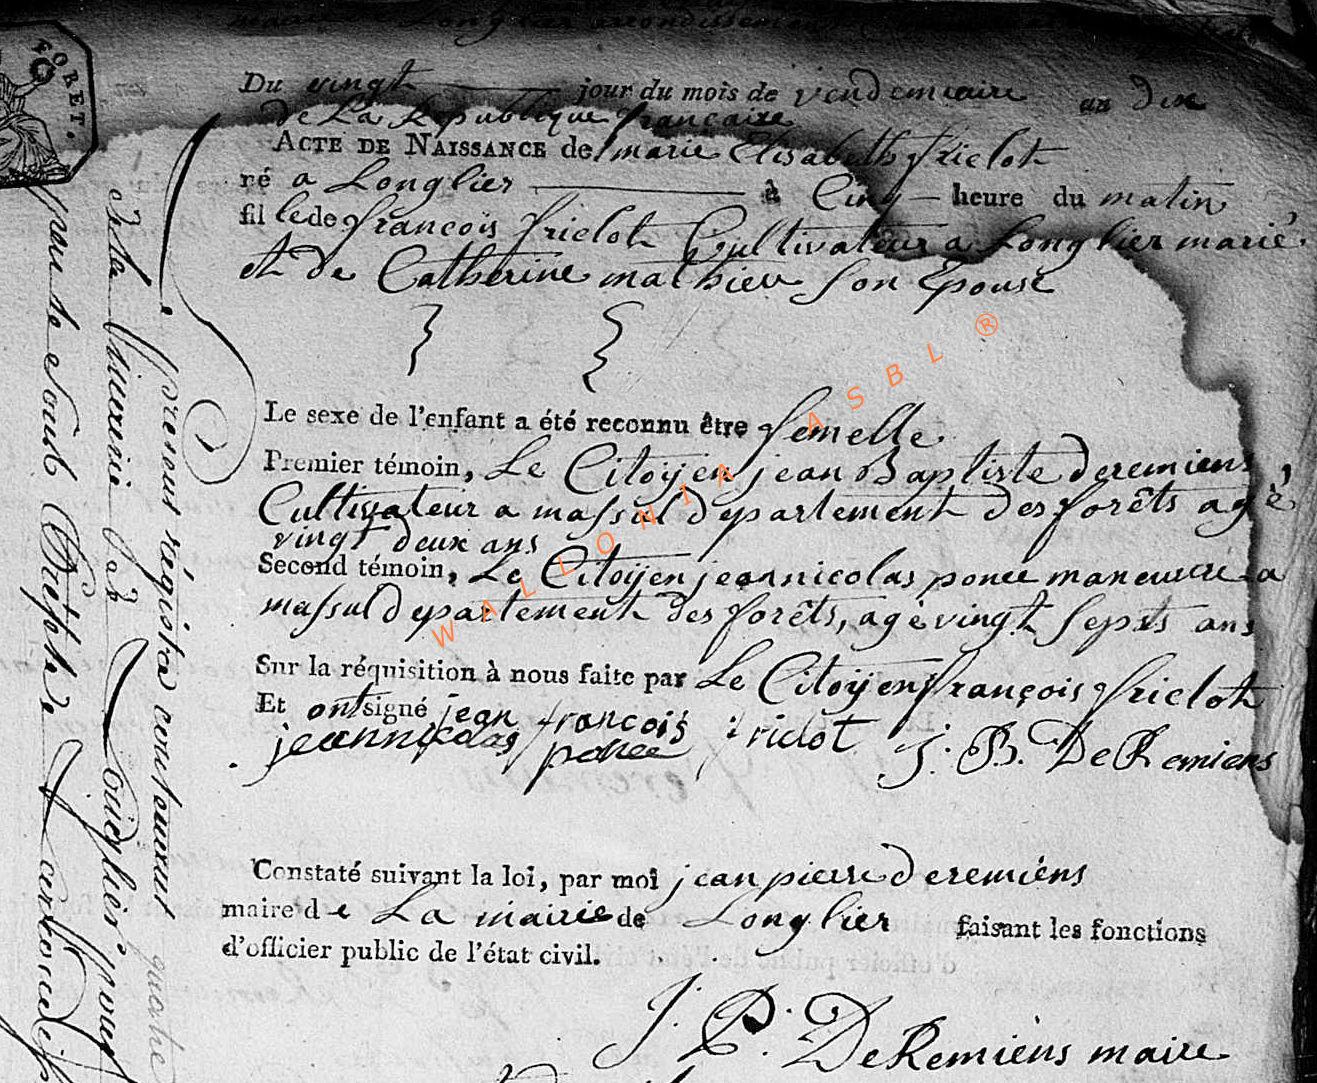 FORET.
Du vingt jour du mois de vendemiaire an dix
de La Republique française
ACTE DE NAISSANCE de marie Elisabeth friclot
né a Longlier à Cinq heure du matin
fil le de francois friclot Cultivateur a Longlier marié
et de Catherine mathieu son Epouse
Le sexe de l'enfant a été reconnu être femelle
Premier témoin, Le Citoyen jean Baptiste deremiens,
Cultivateur a massul departement des forêts agé
vingt deux ans
Second témoin, Le Citoyen jeannicolas poncé maneuvre a
massul departement des forêts, agé vingt septs ans
Sur la réquisition à nous faite par Le Citoyen françois friclot
Et ont signé jean francois friclot J. B. DeRemiens
jeannicolas poncé
Constaté suivant la loi, par moi jean pierre deremiéns
maire de La mairie de Longlier faisant les fonctions
d'officier public de l'état civil.
J. P. DeRemiéns maire
present régistre contenant quatre
de la mairie de Longlier pour
par le
WALLONIA ASBL ®